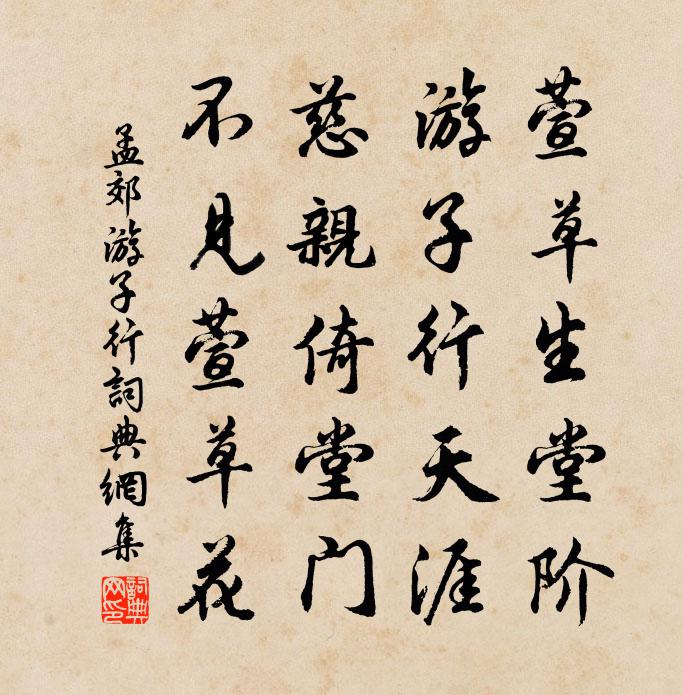 萱草生堂阶
游子行天涯
慈親倚堂门
不见萱草花
孟郊游子行詞典網集
詞典网印